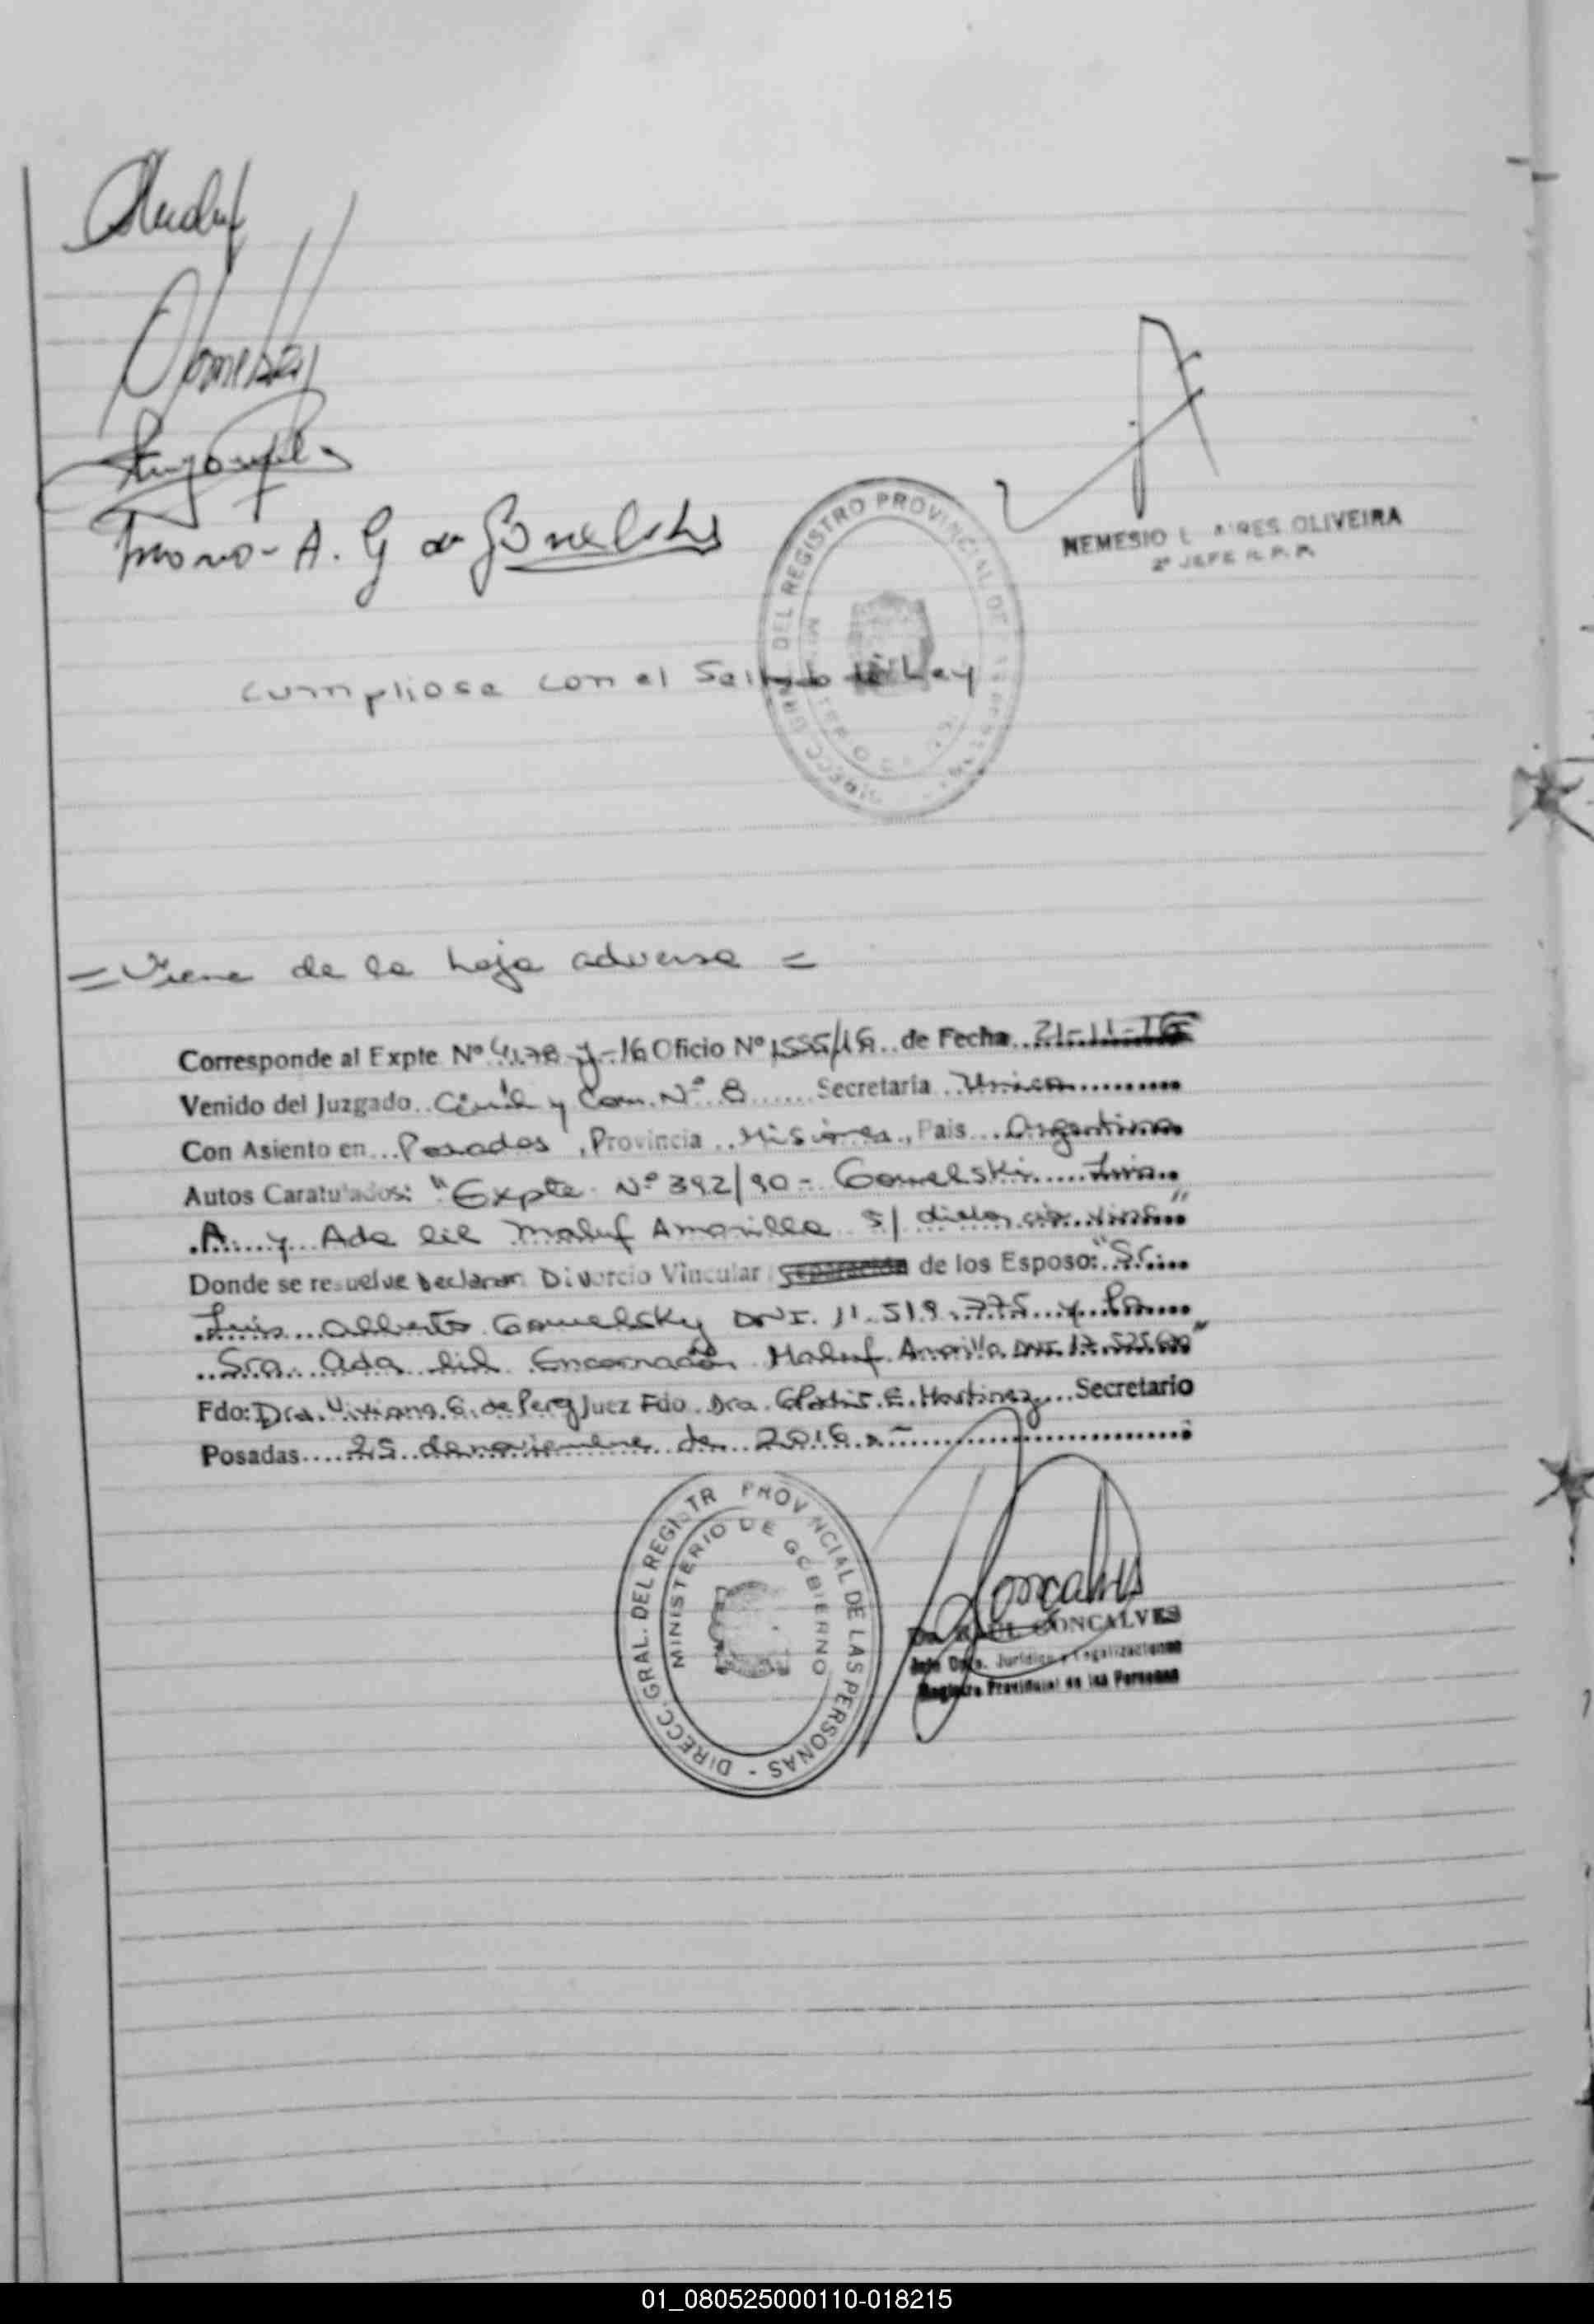 A. G de
NEMESIO L. AIRES OLIVEIRA
2º JEFE R. P. P.
DIRECC. GRAL. DEL REGISTRO PROVINCIAL DE LAS PERSONAS
cumpliose con el Sellado de Ley
= Viene de la hoja adversa =
Corresponde al Expte Nº 4178-y-16 Oficio Nº 1555/16 de Fecha 21-11-16
Venido del Juzgado Civil y Com. Nº 8 Secretaría Unica
Con Asiento en Posadas, Provincia Misiones, Pais Argentina
Autos Caratulados: "Expte Nº 392/90 - Gomelski Luis
A. y Ada lil Maluf Amarilla s/ divorcio vinc"
Donde se resuelve Declarar Divorcio Vincular Separación de los Esposo: "Sr.
Luis Alberto Gomelsky DNI. 11.519.775 y la
Sra. Ada lil Encarnación Maluf Amarilla DNI
Fdo: Dra. Viviana G. de Juez Fdo. Dra. Gladis E. Martinez Secretario
Posadas 25 de noviembre de 2016
DIRECC. GRAL. DEL REGISTR PROVINCIAL DE LAS PERSONAS -
MINISTERIO DE GOBIERNO
Dr. RAUL GONCALVES
Jefe Dpto. Jurídico y Legalizaciones
Registro Provincial de las Personas
01_080525000110-018215